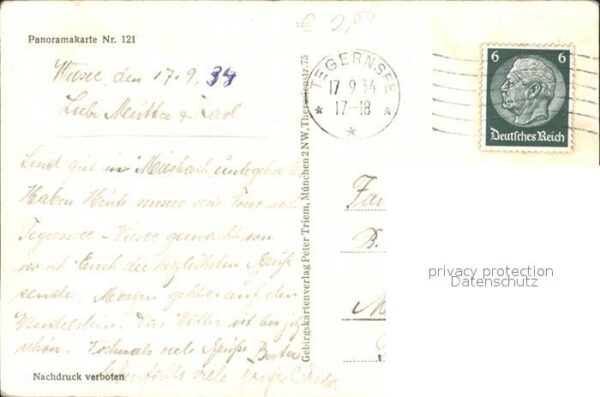 € 2,00
Panoramakarte Nr. 121
Wiesee, den 17.9.34
Liebe Mutter u. Karl
Sind gut in Miesbach
Haben Heute unsere erste Tour nach
Tegernsee - Wiesee gemacht von
wo ich Euch die herzlichsten Grüße
sende. Morgen gehts auf den
Wendelstein. Das Wetter ist bis jetzt
schön. Nochmals viele Grüße
viele Grüße
Nachdruck verboten
Gebirgskartenverlag Peter Triem, München 2 NW, Theresienstr. 75
TEGERNSEE
17 9 34
17-18
6 6
Deutsches Reich
privacy protection
Datenschutz